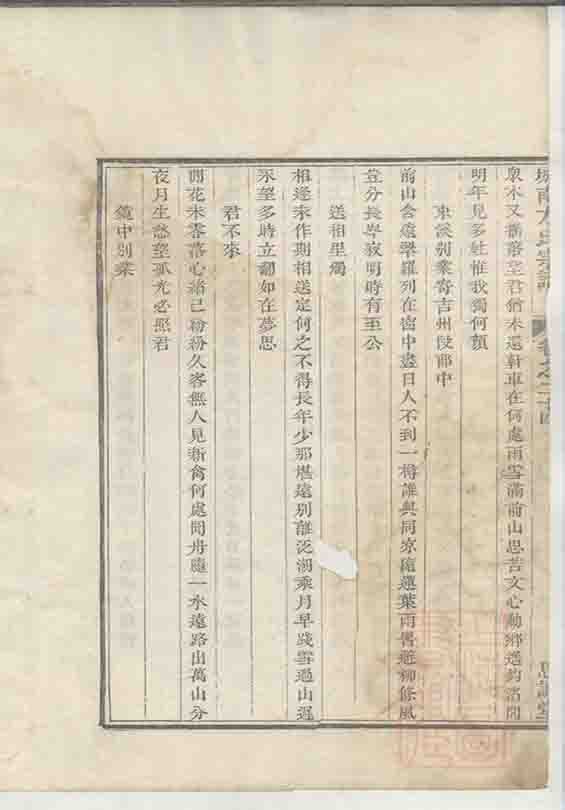 城南方氏宗譜 卷之二十四
衆木又漸落望君猶未還軒車在何處雨雪滿前山思苦文心動鄉遙釣渚間
明年見多姓惟我獨何顏
東溪別業寄吉州段郎中
前山含遠翠羅列在窗中盡日人不到一樽誰與同涼隨蓮葉雨暑避柳條風
豈分長岑寂明時有至公
送相里燭
相逢未作期相送定何之不得長年少那堪遠別離泛湖乘月早踐雪過山遲
永望多時立翻如在夢思
君不來
閒花未零落心緒已紛紛久客無人見新禽何處聞舟隨一水遠路出萬山分
夜月生愁望孤光必照君
鏡中別業